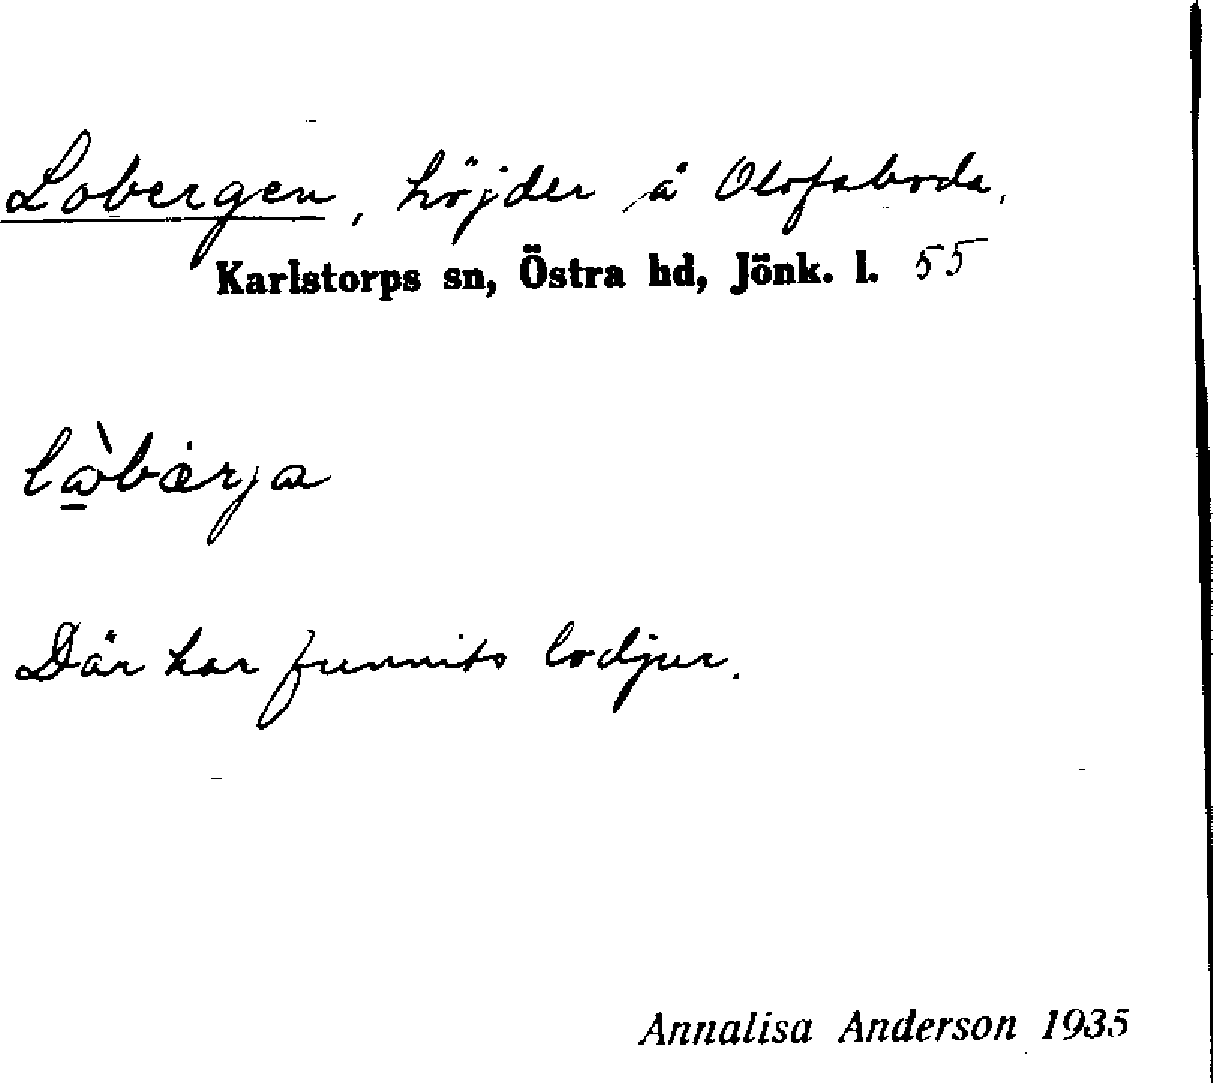 Lobergen, höjder å Olofsboda.
Karlstorps sn, Östra hd, Jönk. l. 55
Där har funnits lodjur.
Annalisa Anderson 1935